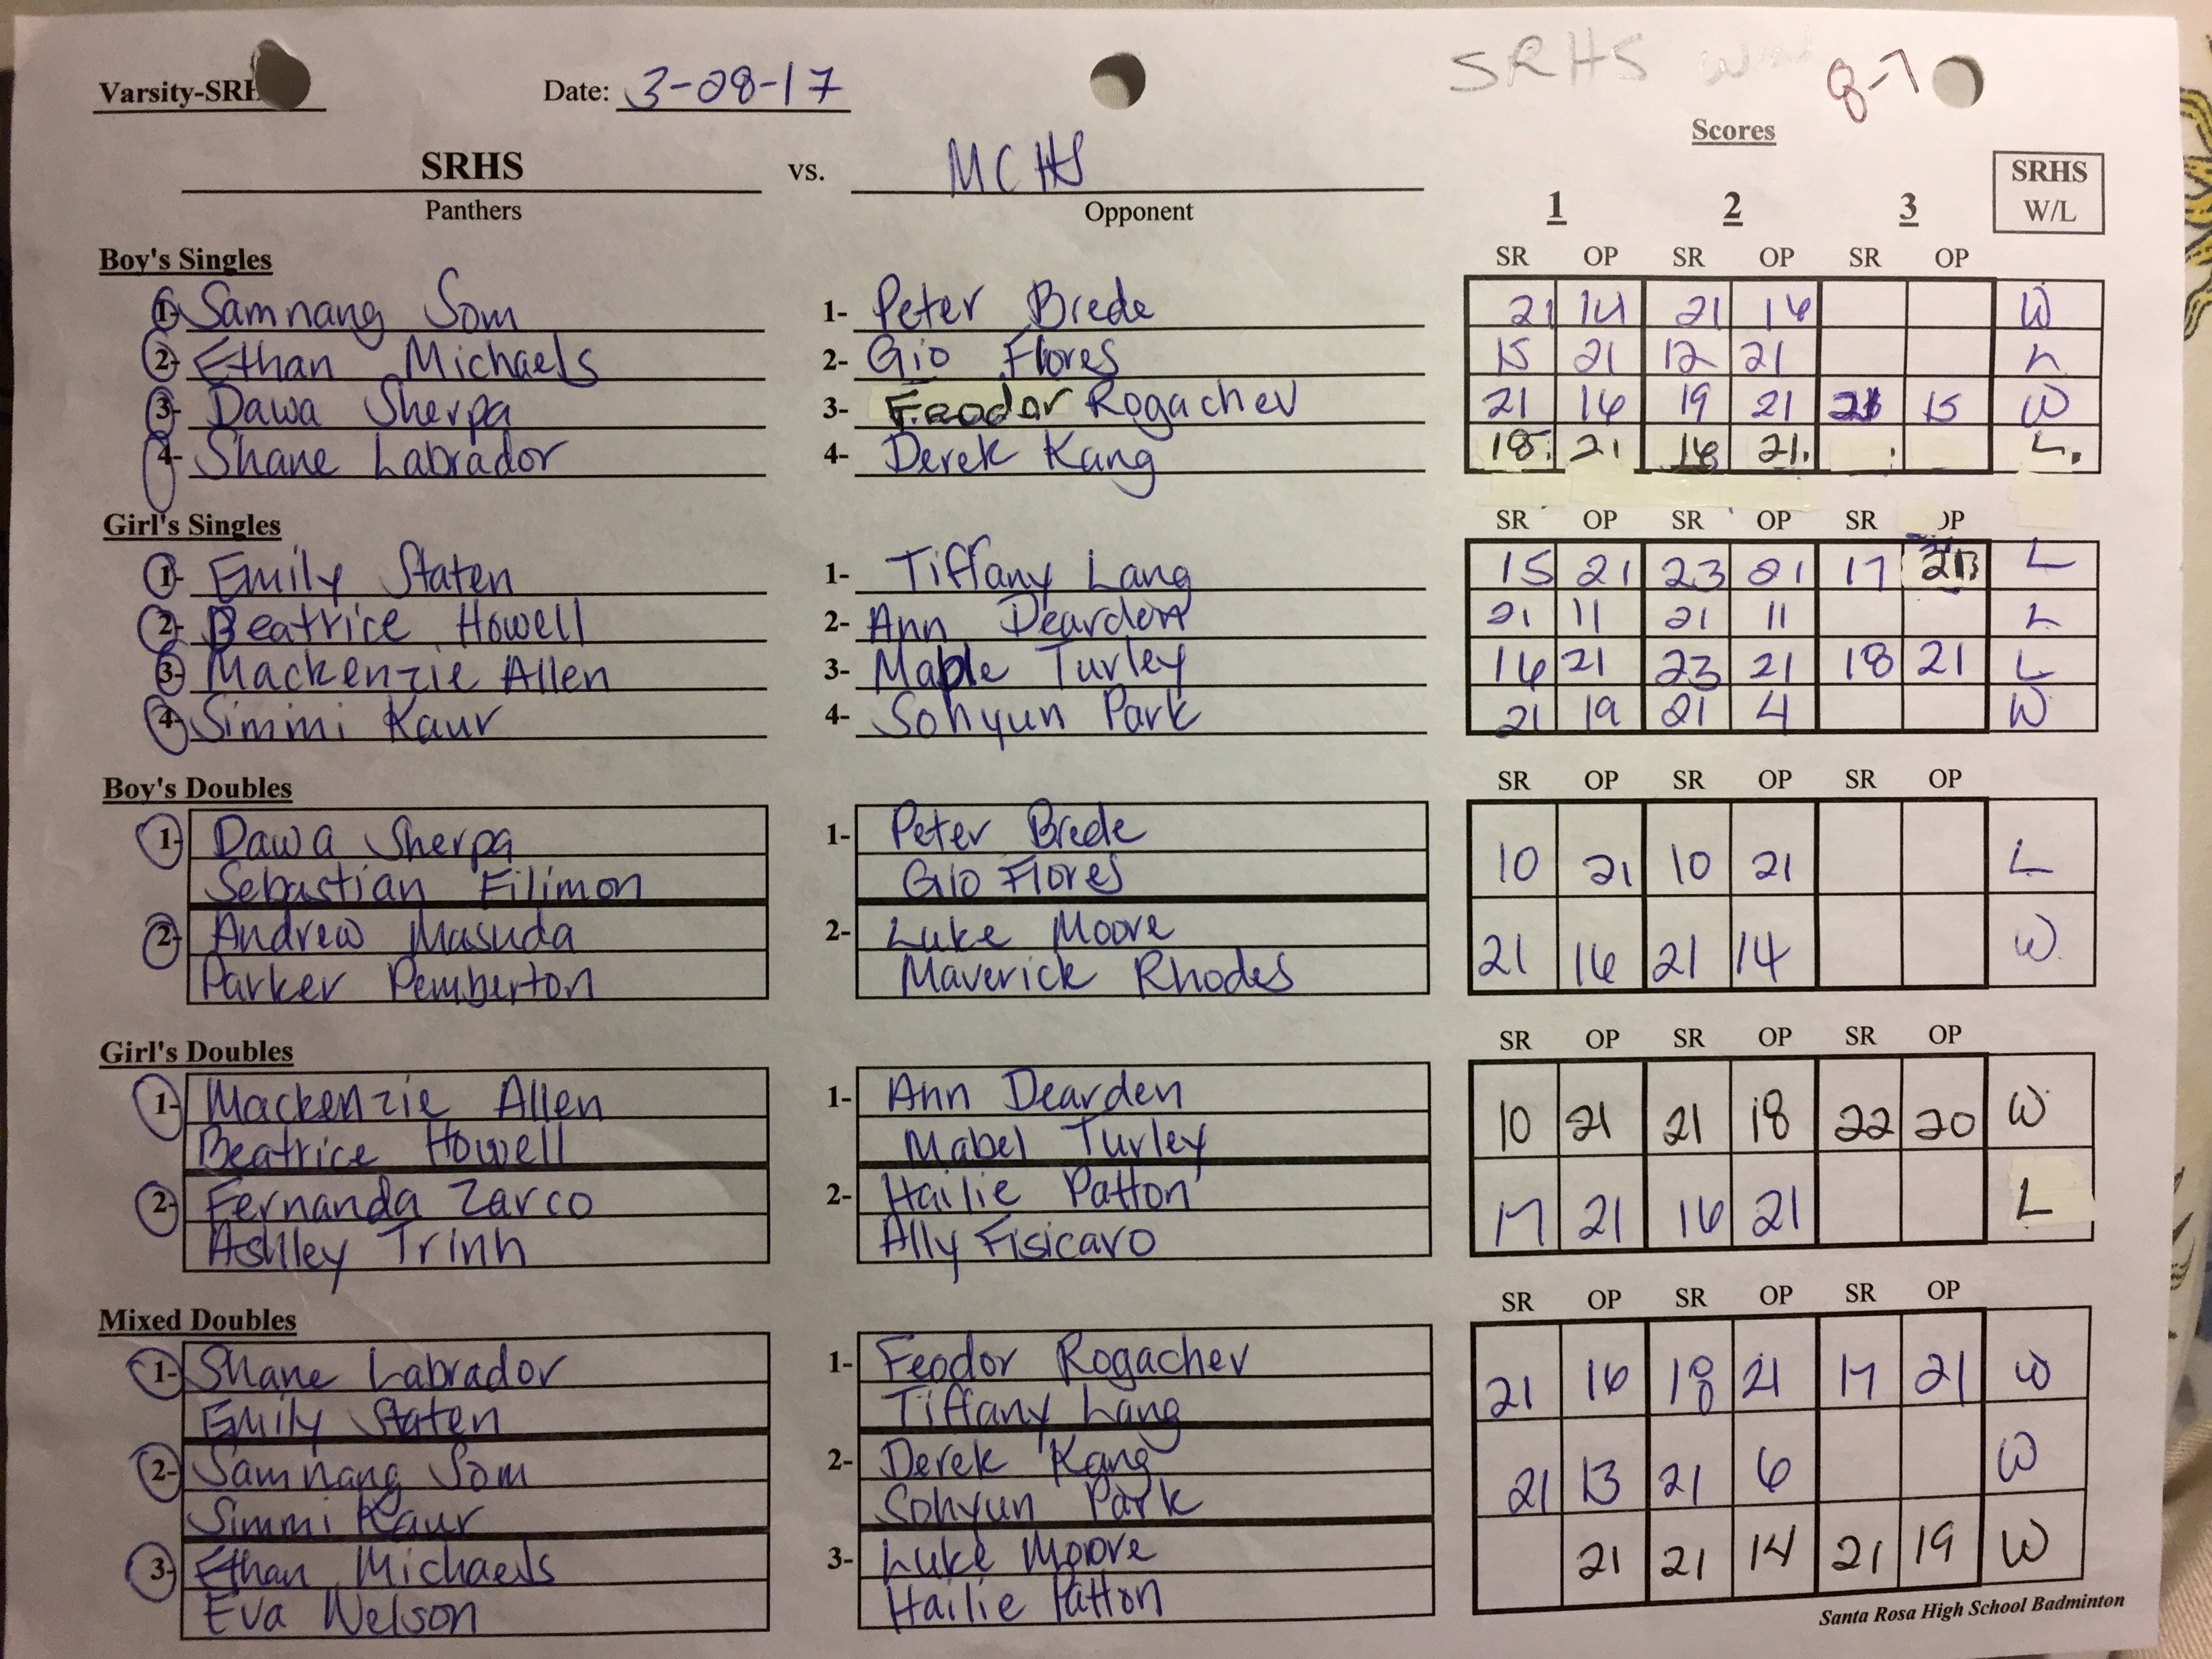 SRHS
8-7
Varsity-SRH
Date: 3-08-17
Scores
SRHS vs. MCHS
Panthers Opponent
1 2 3 SRHS W/L
Boy's Singles SR OP SR OP SR OP
1- Samnang Som 1- Peter Brede 21 14 21 16 W
2- Ethan Michaels 2- Gio Flores 15 21 12 21 L
3- Dawa Sherpa 3- Feodor Rogachev 21 16 19 21 21 15 W
4- Shane Labrador 4- Derek Kang 18 21 16 21 L
Girl's Singles SR OP SR OP SR OP
1- Emily Staten 1- Tiffany Lang 15 21 23 21 17 21 L
2- Beatrice Howell 2- Ann Dearden 21 11 21 11 L
3- Mackenzie Allen 3- Mable Turley 16 21 23 21 18 21 L
4- Simmi Kaur 4- Sohyun Park 21 19 21 4 W
Boy's Doubles SR OP SR OP SR OP
1- Dawa Sherpa 1- Peter Brede
Sebastian Filimon Gio Flores 10 21 10 21 L
2- Andrew Masuda 2- Luke Moore
Parker Pemberton Maverick Rhodes 21 16 21 14 W
Girl's Doubles SR OP SR OP SR OP
1- Mackenzie Allen 1- Ann Dearden
Beatrice Howell Mabel Turley 10 21 21 18 22 20 W
2- Fernanda Zarco 2- Hailie Patton
Ashley Trinh Ally Fisicaro 17 21 16 21 L
Mixed Doubles SR OP SR OP SR OP
1- Shane Labrador 1- Feodor Rogachev
Emily Staten Tiffany Lang 21 16 18 21 17 21 W
2- Samnang Som 2- Derek Kang
Simmi Kaur Sohyun Park 21 13 21 6 W
3- Ethan Michaels 3- Luke Moore
Eva Nelson Hailie Patton 21 21 14 21 19 W
Santa Rosa High School Badminton